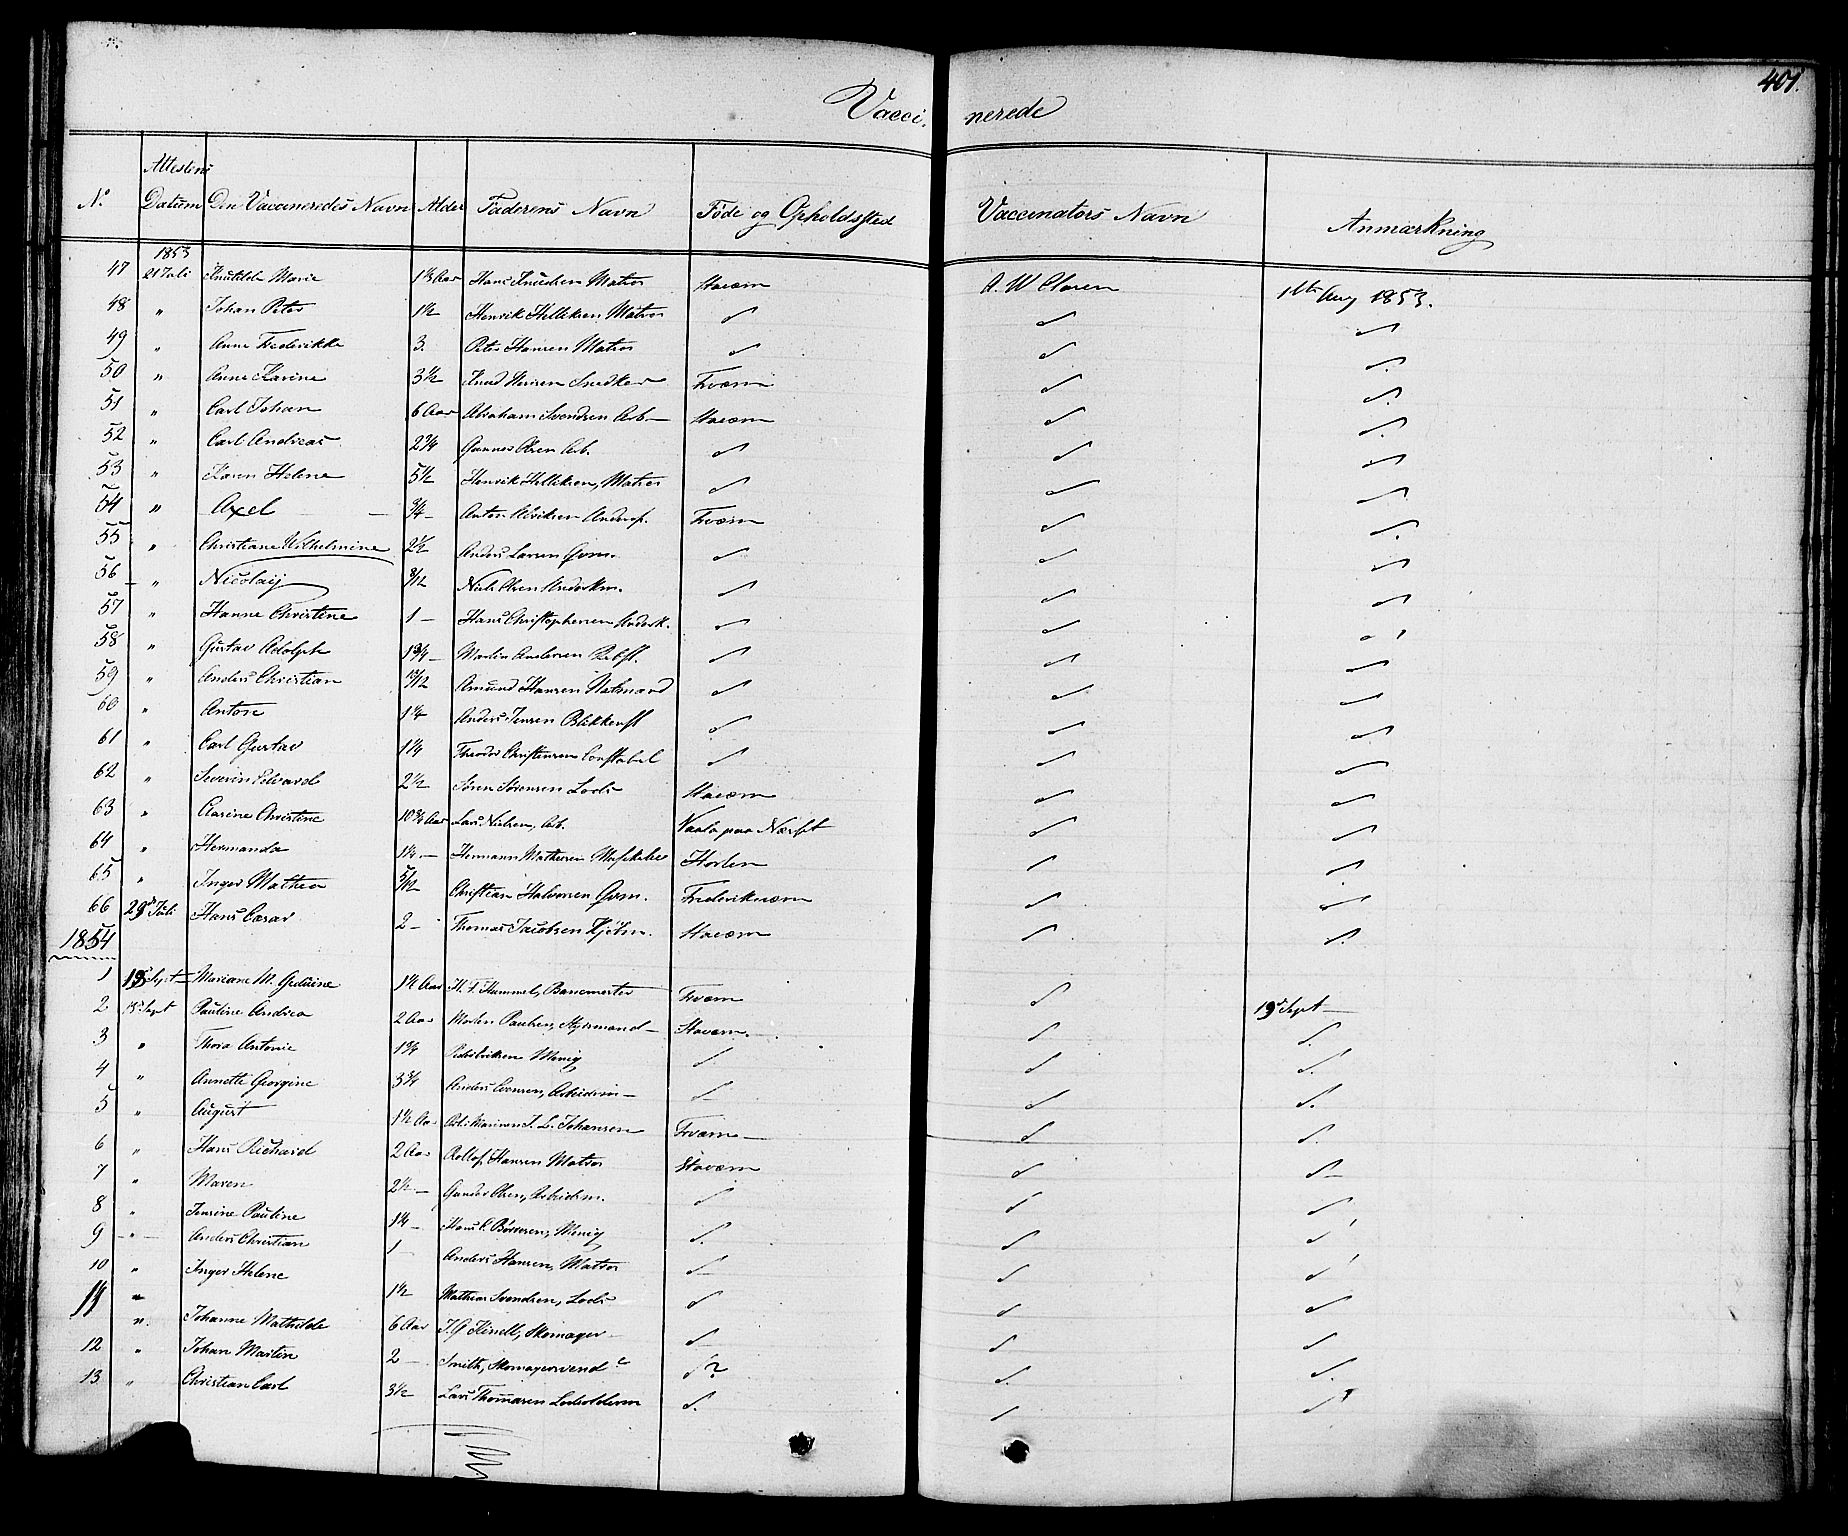 401.
Vacci- nerede
N.º Attestens Datum Den Vaccineredes Navn Alder Faderens Navn Føde og Opholdssted Vaccinators Navn Anmærkning
1853
47 21 Juli Knutilde Marie 1½ Aar Hans Knudsen Matros Staværn A. W Claren Aug 1853.
48 " Johan Peter 1½ Henrik Helliksen Matros d d d
49 " Anne Frederikke 3. Peter Hansen Matros d d d.
50 " Anne Karine 3½ Knud Iversen Snedker Frværn d d.
51 " Carl Johan 6 Aar Abraham Svendsen Arb- Staværn d d.
52 " Carl Andreas 2¾ Gunner Olsen Arb. d d d
53 " Karen Helene 5½ Henrik Helliksen, Matros d d d
54 " Axel ¾ - Anton Ulriksen Frværn d d.
55 " Christiane Wilhelmine 2½ Anders Larsen Gvm. d d d
56 - " Nicolay 9/12 Niels Olsen Underkm. d d d
57 " Hanne Christine 1 - Hans Christophersen Underk. d d d
58 " Gustav Adolph 1¾ - Martin Andersen d d d
59 " Anders Christian 10/12 Amund Hansen d d d
60 " Anton 1¼ Anders Jensen Blikkensl d d d
61 " Carl Gustav 1¼ Theodor Christensen Constabel d d d
62 " Severin Edvard 2½ Søren Sørensen Lods Staværn d d
63 " Carine Christine 10¾ Aar Lars Nielsen, Arb. paa d d
64 " Hermanda 1¼ - Hermann Mathesen Horten d d.
65 " Inger Mathea 5/12 Christian Halvorsen Gvm. Frederiksværn d d
66 29 Juli Hans Cæsar 2 - Thomas Jacobsen Staværn d d.
1854
1 19 Sept Mariane M. 1½ Aar H. F. Hummel, Banemester Frværn d 19 Sept -
2 19 Sept Pauline Andrea 2 Aar Morten Paulsen, Styrmand - Staværn d d.
3 " Thora Antonie 1¾ Menig d d d.
4 " Annette Georgine 3¾ Anders Evensen, Arbeidsm - d - d d.
5 " August 1½ Aar J. L. Johansen Frværn - d d.
6 " Hans Richard 2 Aar Rollof Hansen Matros Staværn d d -
7 " Maren 2½ - Gunder Olsen, Arbeidsm. d d d
8 " Jensine Pauline 1¼ - Hans C. Børresen, Menig d. d d
9 - " - Anders Christian 1 - Anders Hansen, Matros d - d d
10 " Inger Helene 1½ Mathias Svendsen, Lods d d d
11 " Johanne Mathilde 6 Aar J. G Skomager - d - d d
12 " Johan Martin 2 - Smith, Skomagersvend d? d. d.
13 " Christian Carl 3½ Lars Thomasen d. d d